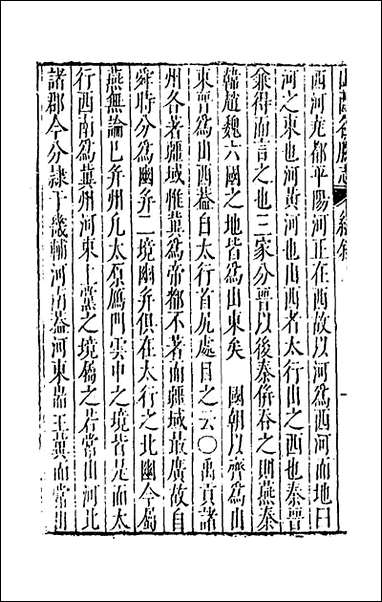 山西名勝志　總敘
西河堯都平陽河正在西故以河爲西河而地曰
河之東也河黃河也山西者太行山之西也秦晉
兼得而言之也三家分晉以後秦倂吞之則燕秦
韓趙魏六國之地皆爲山東矣　國朝以齊爲山
東晉爲山西葢自太行首尻處目之云○禹貢諸
州各著疆域惟冀爲帝都不著而疆域最廣故自
舜時分爲幽并二境幽并俱在太行之北幽今屬
燕無論已并州凡太原鴈門雲中之境皆是而太
行西南爲冀州河東上黨之境屬之若常山河北
諸郡今分隸于畿輔河南葢河東耑主冀而常山